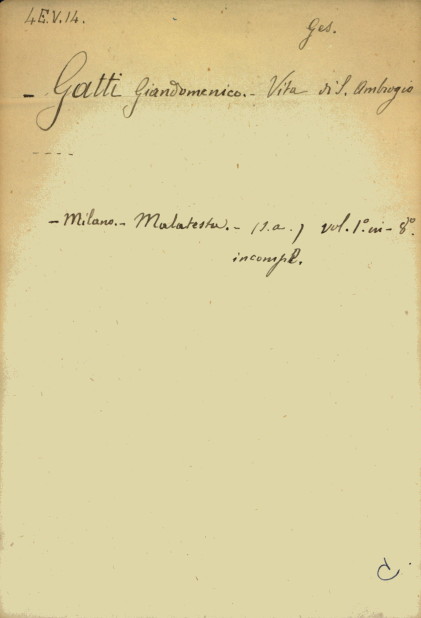 4E.V.14.
Ges.
- Gatti Giandomenico.- Vita di S. Ambrogio
- - - -
- Milano.- Malatesta.- (s.a.) vol. 1º in-8º.
incompl.